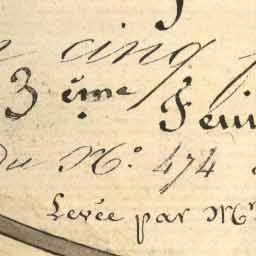 cinq
3ème Feui
du No. 474
Levée par Mr